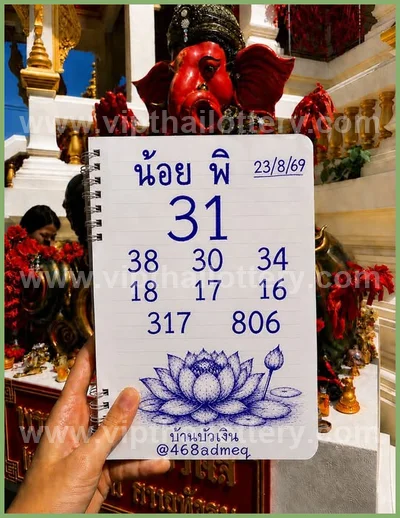 www.vipthailottery.com
น้อย พิ 23/8/69
31
38 30 34
www.vipthailottery.com
18 17 16
317 806
www.vipthailottery.com
บ้านบัวเงิน
@468admeq